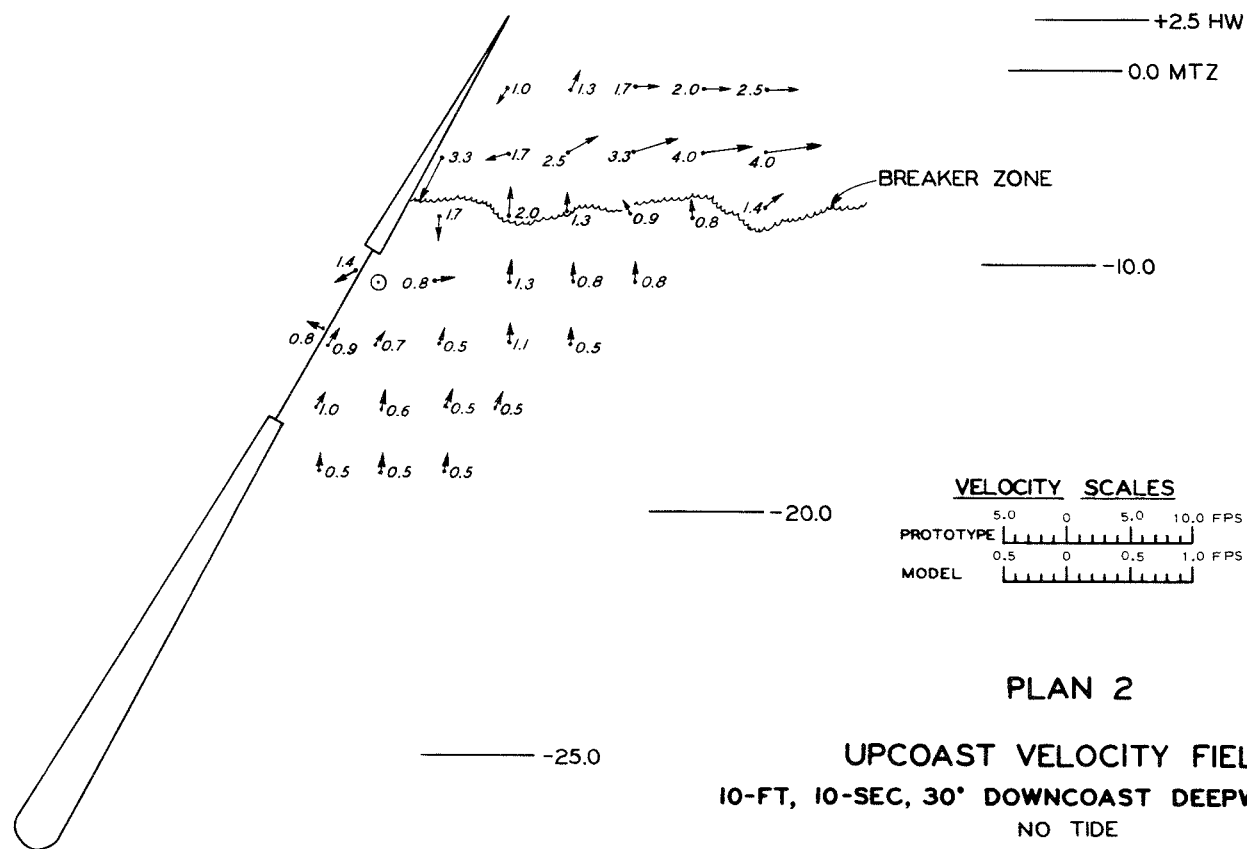 +2.5 HW
0.0 MTZ
1.0 1.3 1.7 2.0 2.5
3.3 1.7 2.5 3.3 4.0 4.0
BREAKER ZONE
1.7 2.0 1.3 0.9 0.8 1.4
-10.0
1.4 0.8 1.3 0.8 0.8
0.8 0.9 0.7 0.5 1.1 0.5
1.0 0.6 0.5 0.5
0.5 0.5 0.5
-20.0
VELOCITY SCALES
5.0 0 5.0 10.0 FPS
PROTOTYPE
0.5 0 0.5 1.0 FPS
MODEL
PLAN 2
-25.0
UPCOAST VELOCITY FIEL
10-FT, 10-SEC, 30° DOWNCOAST DEEPW
NO TIDE